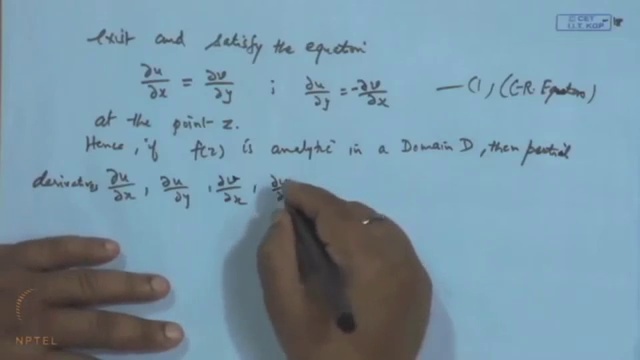 © CET
I.I.T. KGP
exist and satisfy the equation
∂u/∂x = ∂v/∂y ; ∂u/∂y = -∂v/∂x — (1) (C-R Equations)
at the point z.
Hence, if f(z) is analytic in a Domain D, then partial
derivatives ∂u/∂x, ∂u/∂y, ∂v/∂x,
NPTEL